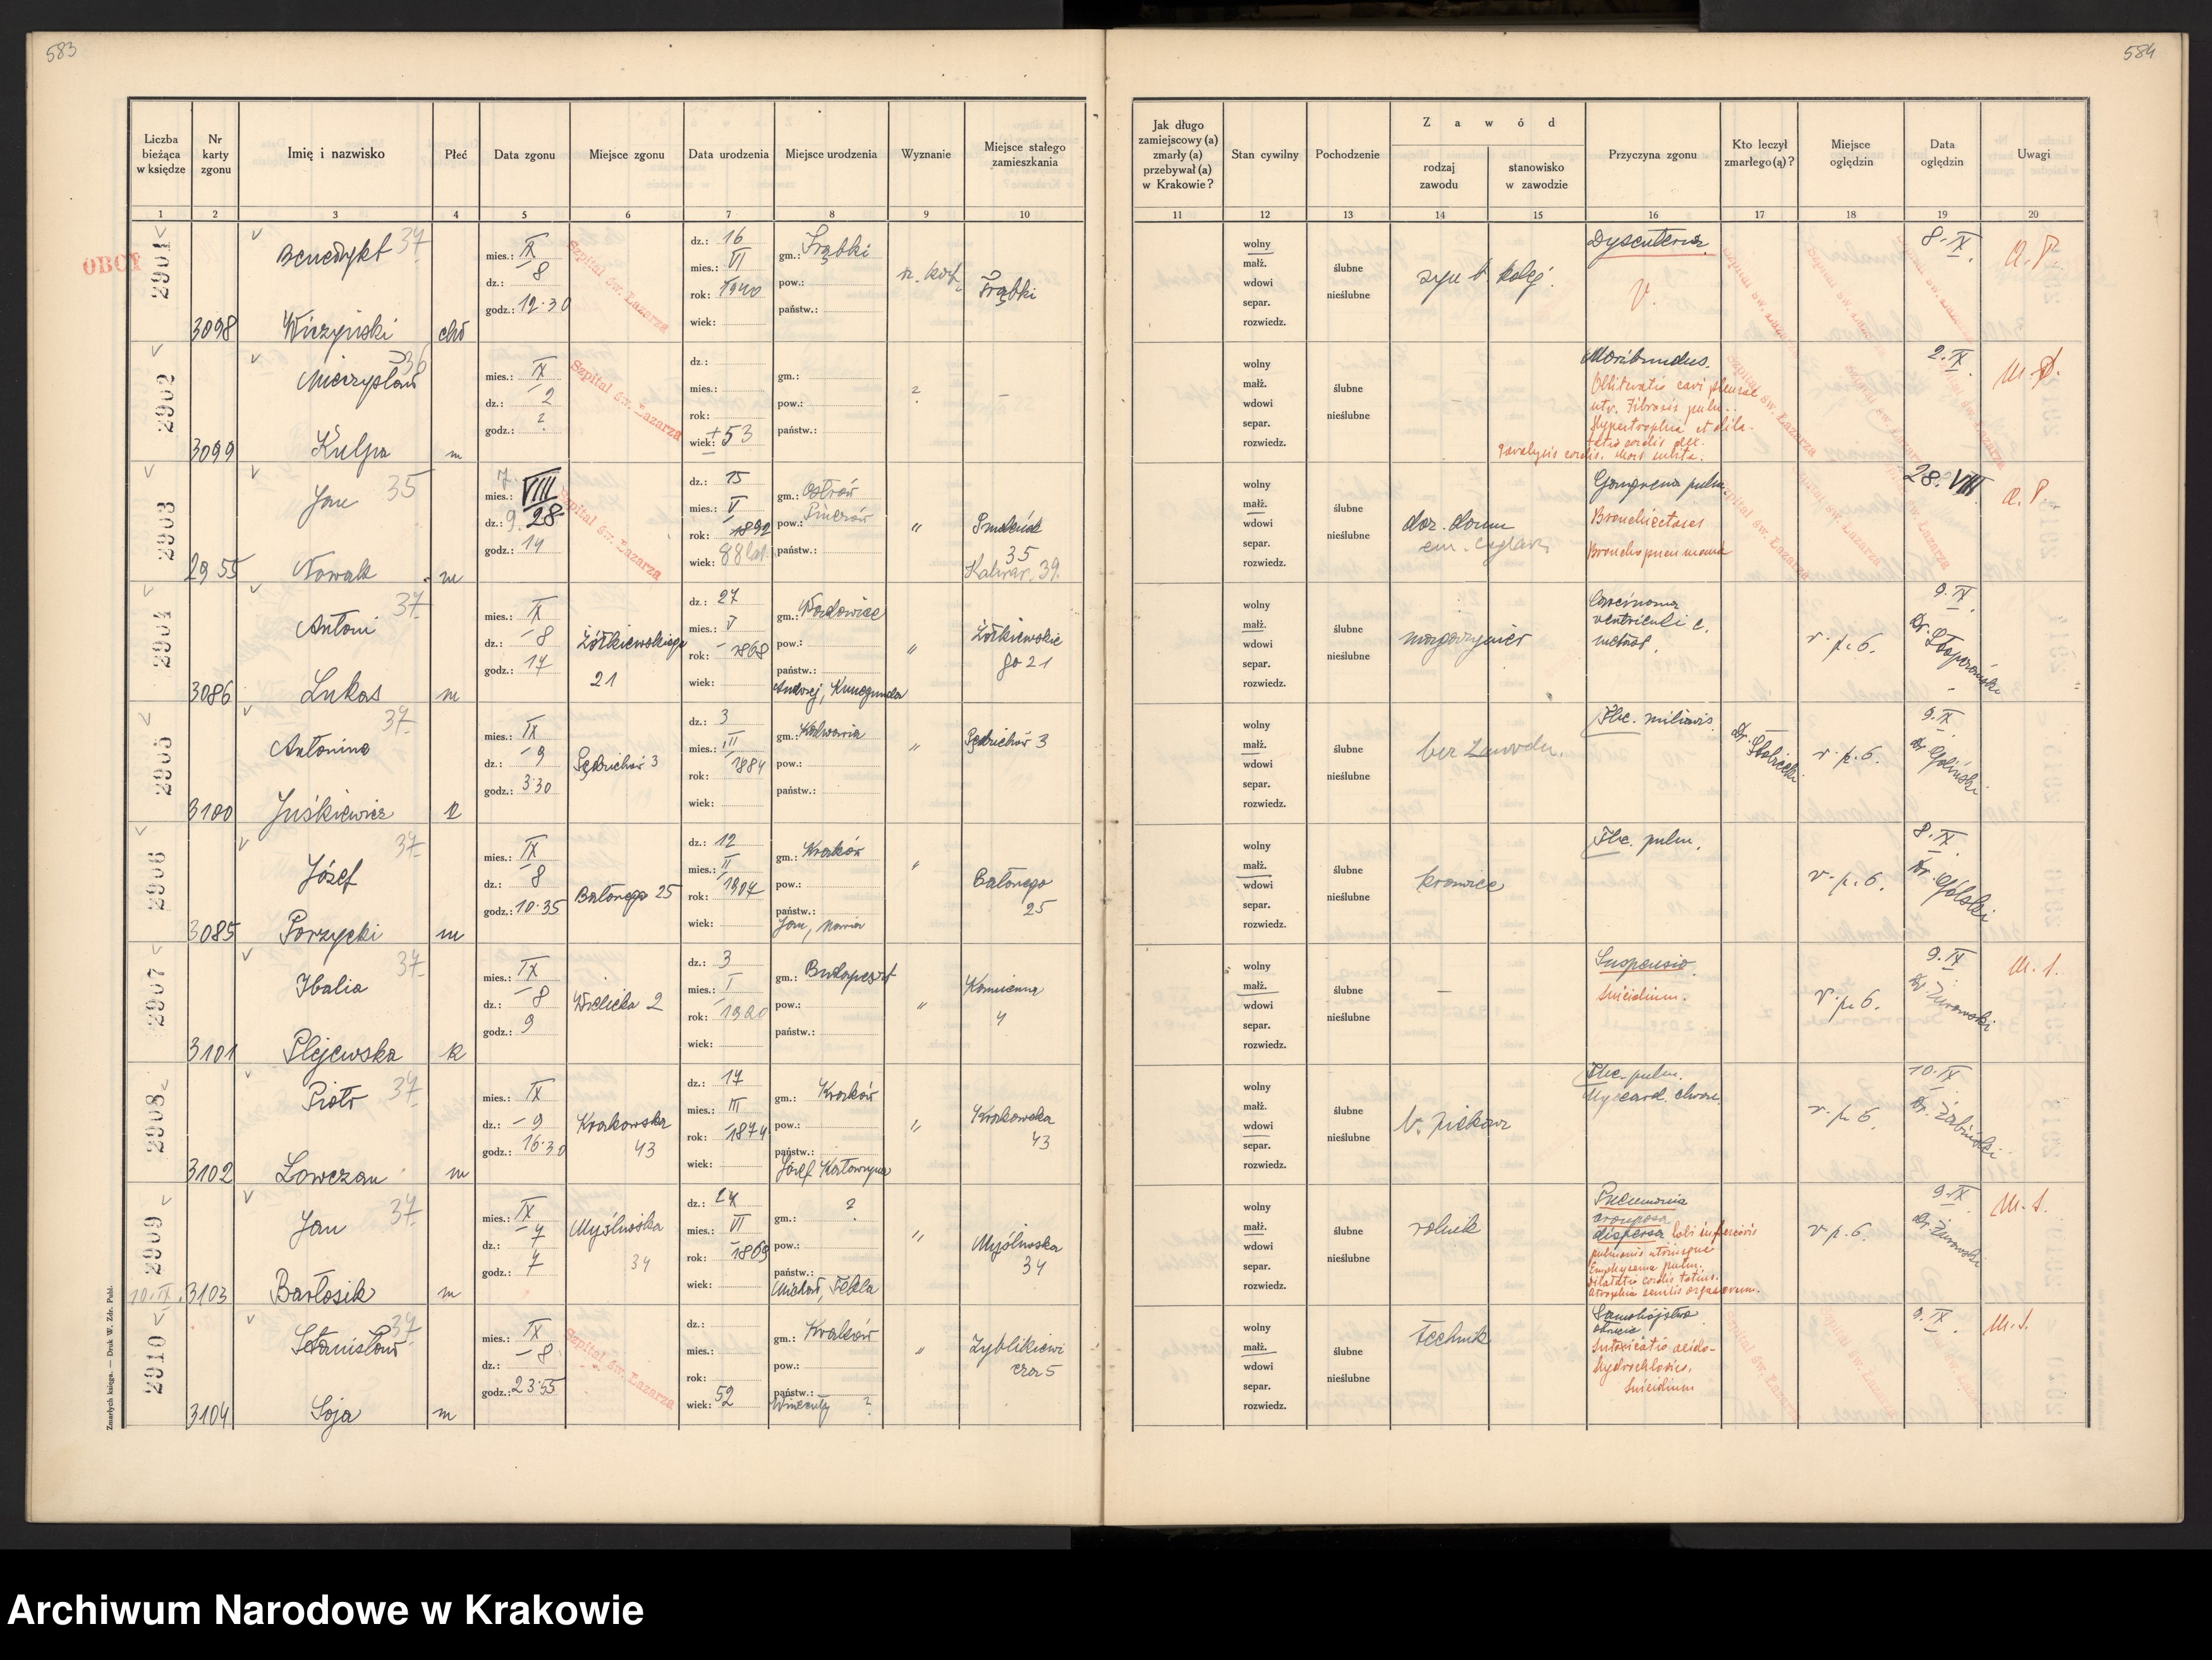 583
584
Liczba bieżąca w księdze
Nr karty zgonu
Imię i nazwisko
Płeć
Data zgonu
Miejsce zgonu
Data urodzenia
Miejsce urodzenia
Wyznanie
Miejsce stałego zamieszkania
Jak długo zamiejscowy (a) zmarły (a) przebywał (a) w Krakowie?
Stan cywilny
Pochodzenie
Zawód
rodzaj zawodu
stanowisko w zawodzie
Przyczyna zgonu
Kto leczył zmarłego(ą)?
Miejsce oględzin
Data oględzin
Uwagi
1 2 3 4 5 6 7 8 9 10 11 12 13 14 15 16 17 18 19 20
OBCY
2901
3098
Benedykt 37
Wiczyński
chł
mies.: IX
dz.: 8
godz.: 12·30
Szpital św. Łazarza
dz.: 16
mies.: VI
rok: 1940
wiek:
gm.:
pow.:
państw.:
wolny
małż.
wdowi
separ.
rozwiedz.
ślubne
nieślubne
Dysenteria
8. IX.
2902
3099
Mieczysław 36
Kulpa
m
mies.: IX
dz.: 2
godz.: ?
Szpital św. Łazarza
dz.:
mies.:
rok:
wiek: ±53
gm.:
pow.:
państw.:
?
wolny
małż.
wdowi
separ.
rozwiedz.
ślubne
nieślubne
Moribundus.
Obliteratio cavi pleurae
utr. Fibrosis pulm.
Hypertrophia et dila-
tatio cordis dex.
Paralysis cordis. Mors subita.
2. IX.
2903
2955
Jan 35
Nowak
m
mies.: VIII
dz.: 28
godz.: 14
Szpital św. Łazarza
dz.: 15
mies.: V
rok: 1892
wiek: 88 lat
gm.: Ostrów
pow.: Pinczów
państw.:
"
35
Kalwar. 39.
wolny
małż.
wdowi
separ.
rozwiedz.
ślubne
nieślubne
doz. domu
Gangrena pulm.
Bronchiectases
Bronchopneumonia
28. VIII.
a. P.
2904
3086
Antoni 37
Lukas
m
mies.: IX
dz.: 8
godz.: 17
Żółkiewskiego
21
dz.: 27
mies.: V
rok: 1868
wiek:
gm.: Wadowice
pow.:
państw.:
Andrzej, Kunegunda
"
Żółkiewskie
go 21
wolny
małż.
wdowi
separ.
rozwiedz.
ślubne
nieślubne
magazynier
Carcinoma
ventriculi c.
metast.
v. p. 6.
9. IX.
2905
3100
Antonina 37
Juśkiewicz
k
mies.: IX
dz.: 9
godz.: 3·30
Pędzichów 3
dz.: 3
mies.: III
rok: 1884
wiek:
gm.: Kalwaria
pow.:
państw.:
"
Pędzichów 3
wolny
małż.
wdowi
separ.
rozwiedz.
ślubne
nieślubne
bez zawodu.
Tbc. miliaris
v. p. 6.
9. IX.
2906
3085
Józef 37
Porzycki
m
mies.: IX
dz.: 8
godz.: 10·35
Batorego 25
dz.: 12
mies.: II
rok: 1904
wiek:
gm.: Kraków
pow.:
państw.:
Jan, Maria
"
Batorego
25
wolny
małż.
wdowi
separ.
rozwiedz.
ślubne
nieślubne
krawiec
Tbc. pulm.
v. p. 6.
8. IX.
2907
3101
37
Plejewska
k
mies.: IX
dz.: 8
godz.: 9
Wielicka 2
dz.: 3
mies.: I
rok: 1920
wiek:
gm.: Budapeszt
pow.:
państw.:
"
Kamienna
4
wolny
małż.
wdowi
separ.
rozwiedz.
ślubne
nieślubne
Suspensio.
Suicidium.
v. p. 6.
9. IX
Dr. Żurowski
M. S.
2908
3102
Piotr 37
Łowczan
m
mies.: IX
dz.: 9
godz.: 16·30
Krakowska
43
dz.: 17
mies.: III
rok: 1874
wiek:
gm.: Kraków
pow.:
państw.:
Józef Katarzyna
"
Krakowska
43
wolny
małż.
wdowi
separ.
rozwiedz.
ślubne
nieślubne
b. piekarz
Tbc. pulm.
Myocard. chron.
v. p. 6.
10. IX
2909
10. IX.
3103
Jan 37
Bartosik
m
mies.: IX
dz.: 7
godz.: 7
Myśliwska
34
dz.: 24
mies.: VI
rok: 1869
wiek:
gm.: ?
pow.:
państw.:
Michał, Tekla
"
Myśliwska
34
wolny
małż.
wdowi
separ.
rozwiedz.
ślubne
nieślubne
rolnik
Pneumonia
crouposa
dispersa lobi inferioris
pulmonis utriusque
Emphysema pulm.
Dilatatio cordis totius.
Atrophia senilis organorum.
v. p. 6.
9. IX.
Dr. Żurowski
M. S.
2910
3104
Stanisław 37
Soja
m
mies.: IX
dz.: 8
godz.: 23·55
Szpital św. Łazarza
dz.:
mies.:
rok:
wiek: 52
gm.: Kraków
pow.:
państw.:
Wincenty ?
"
Zyblikiewi
cza 5
wolny
małż.
wdowi
separ.
rozwiedz.
ślubne
nieślubne
technik
Samobójstwo
otrucie
Intoxicatio acido-
hydrochlorico.
Suicidium
9. IX.
M. S.
Zmarłych księga. — Druk W. Zdr. Publ.
Archiwum Narodowe w Krakowie